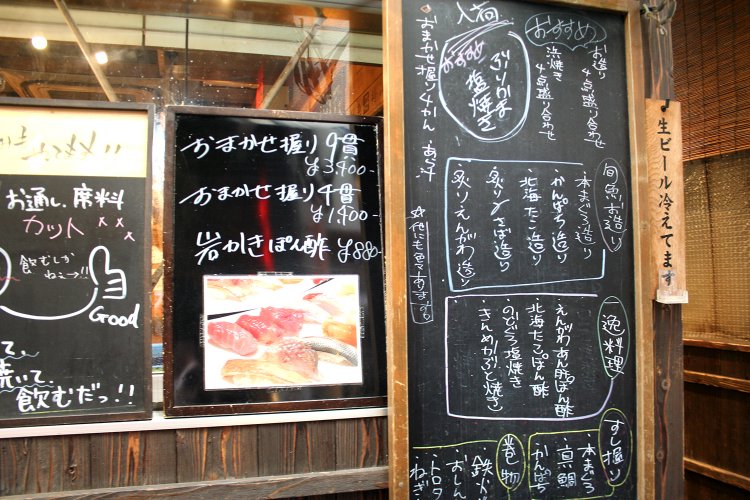 お通し、席料
カット
飲むしか
ねぇーっ!!
Good
て、
焼いて、
飲むだっ!!
おまかせ握り9貫
¥3,400-
おまかせ握り4貫
¥1,400-
岩かきぽん酢 ¥880-
おすすめ
お造り
4点盛り合わせ
浜焼き
4点盛り合わせ
入荷
ぶりかま
塩焼き
おすすめ
おまかせ握り4かん、あら汁
☆他にも色々あります
旬魚お造り
・本まぐろ造り
・かんぱち造り
・北海たこ造り
・炙りさば造り
・炙りえんがわ造り
逸料理
・えんがわあん肝ぽん酢
・北海たこぽん酢
・のどぐろ塩焼き
・きんめかぶと焼き
すし握り
・本まぐろ
・真鯛
・かんぱち
巻物
・鉄火
・おしん
・トロタ
・ねぎ
生ビール冷えてます